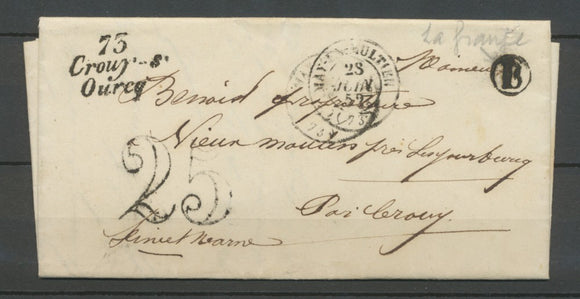 La france
75
Crouy-s'
Ourcq
MAY-EN-MULTIEN
28
JUIN
52
(73)
B
Monsieur
Benoid propriétaire
Vieux moulin près
Par Crouy
25
Seine et Marne